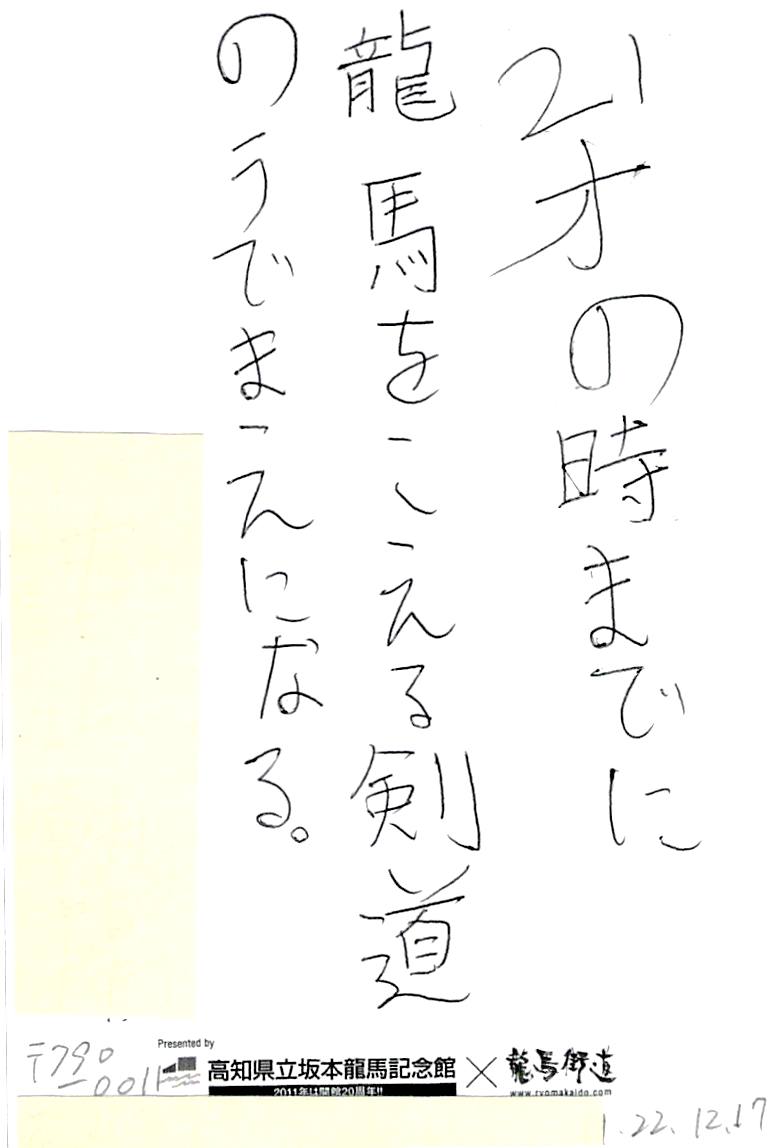 21才の時までに
龍馬をこえる剣道
のうでまえになる。
〒790
-0011
Presented by
高知県立坂本龍馬記念館
2011年は開館20周年!!
×
龍馬街道
www.ryomakaido.com
22.12.17